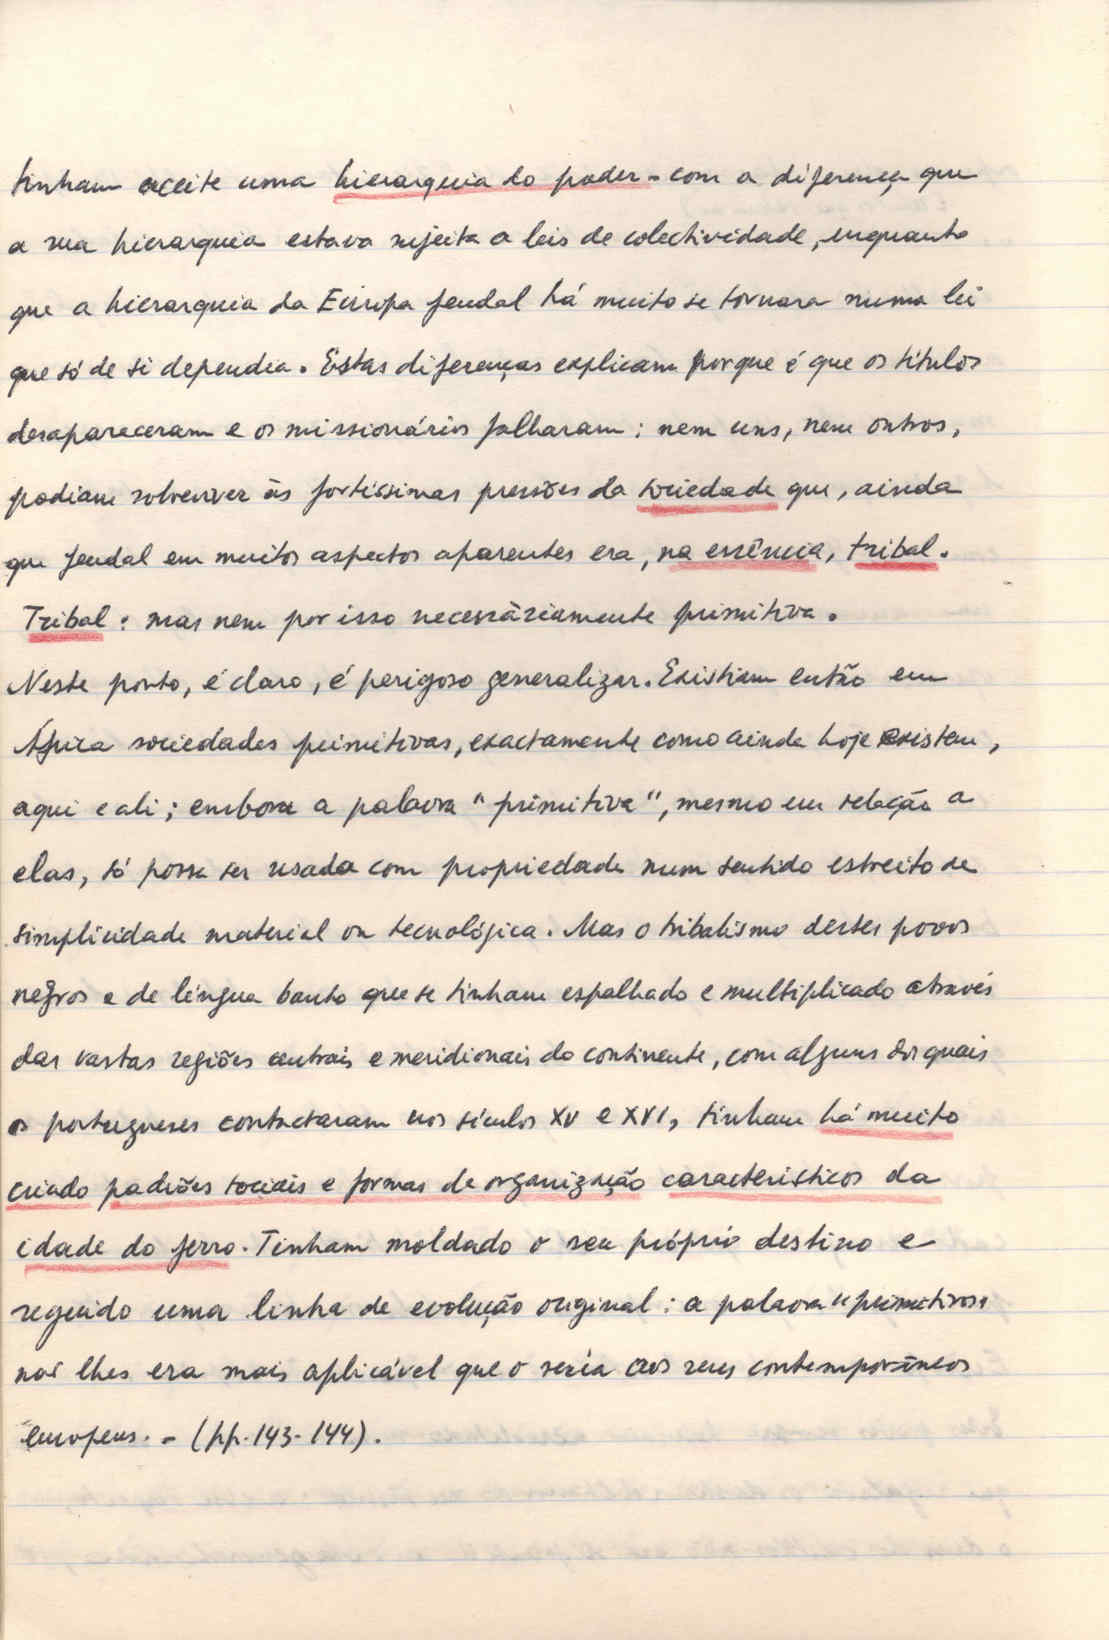 tinham aceite uma hierarquia do poder - com a diferença que
a sua hierarquia estava sujeita a leis de colectividade, enquanto
que a hierarquia da Europa feudal há muito se tornara numa lei
que só de si dependia. Estas diferenças explicam porque é que os títulos
desapareceram e os missionários falharam: nem uns, nem outros,
podiam sobreviver às fortíssimas pressões da sociedade que, ainda
que feudal em muitos aspectos aparentes era, na essência, tribal.
Tribal: mas nem por isso necessàriamente primitiva.
Neste ponto, é claro, é perigoso generalizar. Existiam então em
África sociedades primitivas, exactamente como ainda hoje existem,
aqui e ali; embora a palavra "primitiva", mesmo em relação a
elas, só possa ser usada com propriedade num sentido estreito de
simplicidade material ou tecnológica. Mas o tribalismo destes povos
negros e de língua banto que se tinham espalhado e multiplicado através
das vastas regiões centrais e meridionais do continente, com alguns dos quais
os portugueses contactaram nos séculos XV e XVI, tinham há muito
criado padrões sociais e formas de organização característicos da
idade do ferro. Tinham moldado o seu próprio destino e
seguido uma linha de evolução original: a palavra "primitivos"
não lhes era mais aplicável que o seria aos seus contemporâneos
europeus. - (pp. 143-144).